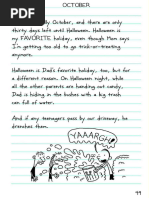 OCTOBER
October, and there are only
thirty days left until Halloween. Halloween is
my FAVORITE holiday, even though Mom says
I'm getting too old to go trick-or-treating
anymore.
Halloween is Dad's favorite holiday, too, but for
a different reason. On Halloween night, while
all the other parents are handing out candy,
Dad is hiding in the bushes with a big trash
can full of water.
And if any teenagers pass by our driveway, he
drenches them.
YAAARGH!
99